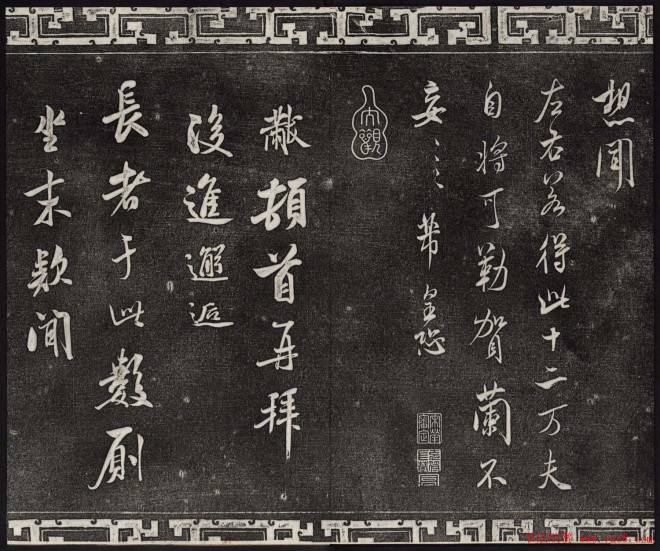 想聞
左右若得此十二万夫
自将可勒賀蘭不
妄〻芾皇恐
大觀
黻頓首再拜
後進邂逅
長者于此數厠
坐末款聞